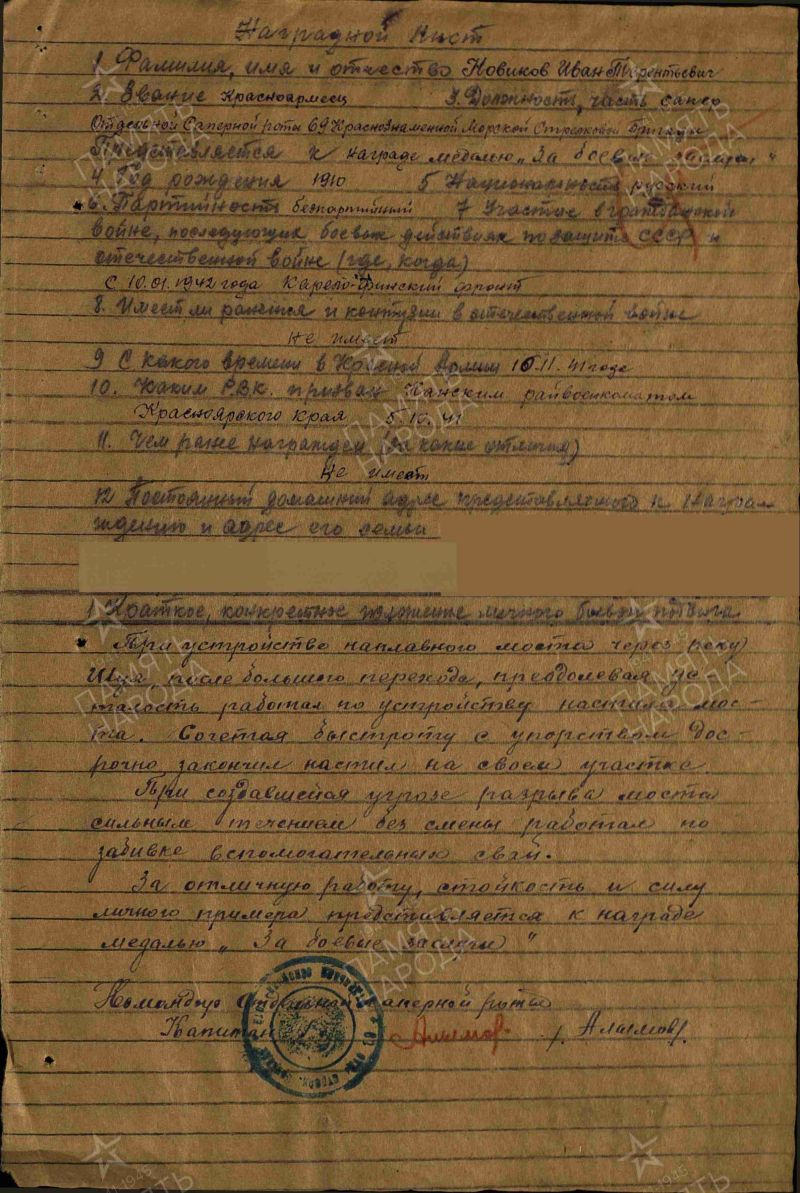 Наградной лист
1 Фамилия, имя и отчество Новиков Иван Терентьевич
2. Звание Красноармеец 3. Должность, часть сапер
Отдельной Саперной роты 69 Краснознаменной Морской Стрелковой Бригады
Представляется к награде медалью „За боевые заслуги"
4 Год рождения 1910 5 Национальность русский
6. Партийность беспартийный 7 Участие в гражданской
войне, последующих боевых действиях по защите СССР и
отечественной войне (где, когда)
С 10.01.1942 года Карело-Финский фронт
8. Имеет ли ранения и контузии в отечественной войне
Не имеет
9 С какого времени в Красной Армии 11.41 года
10. Каким РВК. призван Канским райвоенкоматом
Красноярского края 5.10.41
11. Чем ранее награжден (за какие отличия)
Не имеет
12 Постоянный домашний адрес представляемого к награ-
ждению и адрес его семьи
1 Краткое, конкретное изложение личного боевого подвига
При устройство наплавного моста через реку
Шуя, после большого перехода, преодолевая ус-
талость работал по устройству настила мос-
та. Сочетая быстроту с упорством дос-
рочно закончил настил на своем участке.
При создавшейся угрозе разрыва моста
сильным течением без смены работал по
забивке вспомогательных свай.
За отличную работу, стойкость и силу
личного примера представляется к награде
медалью „За боевые заслуги"
Командир отдельной саперной роты
Капитан /Алымов/
ПАМЯТЬ
НАРОДА